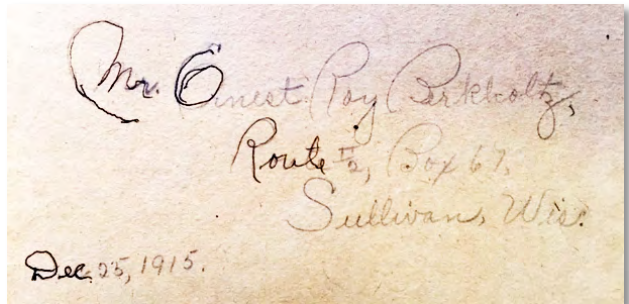 Mr. Ernest Roy Berkholtz,
Route #2, Box 67,
Sullivan, Wis.
Dec. 25, 1915.